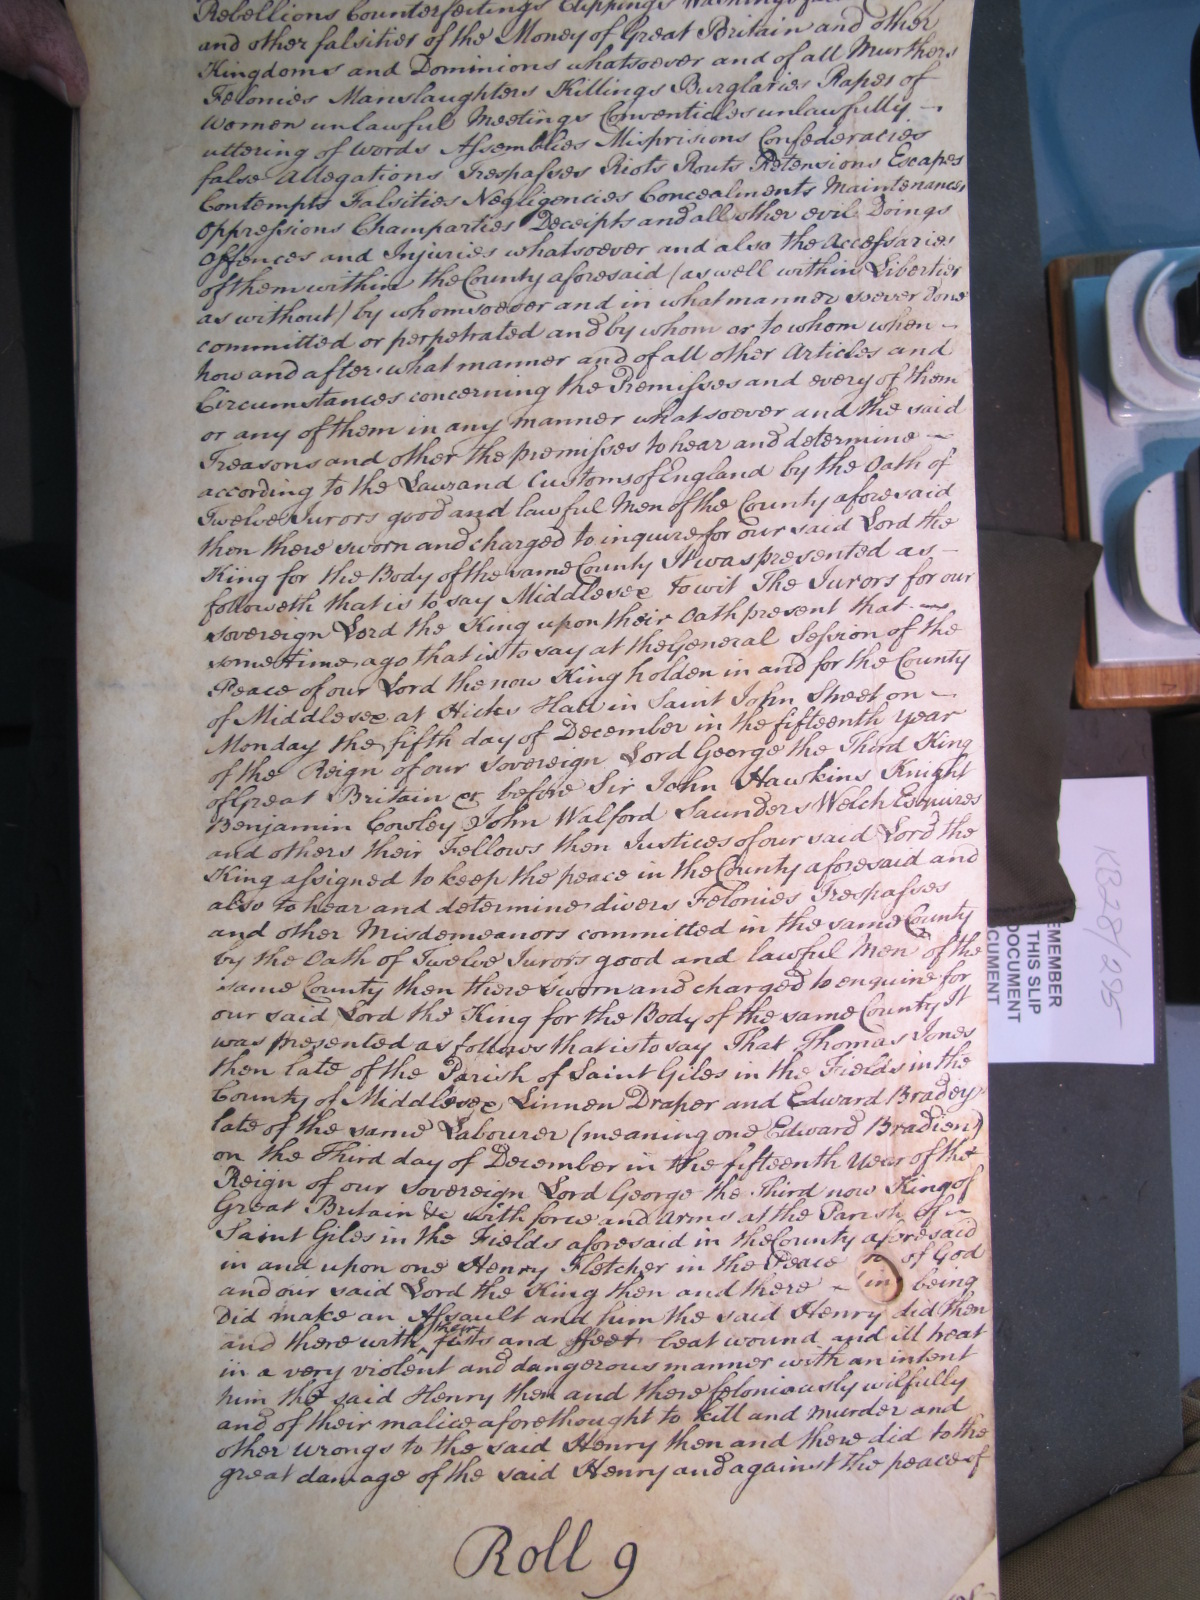 Rebellions Counterfeitings Clippings Washings
and other falsities of the Money of Great Britain and other
Kingdoms and Dominions whatsoever and of all Murthers
Felonies Manslaughters Killings Burglaries Rapes of
Women unlawful Meetings Conventicles unlawfully -
uttering of words Assemblies Misprisions Confederacies
false Allegations Trespasses Riots Routs Retensions Escapes
Contempts Falsities Negligencies Concealments Maintenances
Oppressions Champarties Deceipts and all other evil Doings
Offences and Injuries whatsoever and also the Accessaries
of them within the County aforesaid (as well within Liberties
as without) by whomsoever and in what manner soever done
committed or perpetrated and by whom or to whom when -
how and after what manner and of all other Articles and
Circumstances concerning the Premisses and every of them
or any of them in any manner whatsoever and the said
Treasons and other the premisses to hear and determine -
according to the Laws and Customs of England by the Oath of
Twelve Jurors good and lawful Men of the County aforesaid
then there sworn and charged to inquire for our said Lord the
King for the Body of the same County It was presented as -
followeth that is to say Middlesex to wit The Jurors for our
sovereign Lord the King upon their Oath present that -
some time ago that is to say at the General Session of the
Peace of our Lord the now King holden in and for the County
of Middlesex at Hicks Hall in Saint John Street on -
Monday the fifth day of December in the fifteenth Year
of the Reign of our Sovereign Lord George the Third King
of Great Britain &c before Sir John Hawkins Knight
Benjamin Cowley John Walford Saunders Welch Esquires
and others their Fellows then Justices of our said Lord the
King assigned to keep the peace in the County aforesaid and
also to hear and determine divers Felonies Trespasses
and other Misdemeanors committed in the same County
by the Oath of Twelve Jurors good and lawful Men of the
same County then there sworn and charged to enquire for
our said Lord the King for the Body of the same County It
was presented as follows that is to say That Thomas Jones
then late of the Parish of Saint Giles in the Fields in the
County of Middlesex Linnen Draper and Edward Bradey
late of the same Labourer (meaning one Edward Bradien)
on the Third day of December in the fifteenth Year of the
Reign of our Sovereign Lord George the Third now King of
Great Britain &c with force and Arms at the Parish of -
Saint Giles in the Fields aforesaid in the County aforesaid
in and upon one Henry Fletcher in the Peace of God
and our said Lord the King then and there - (in) being
Did make an Assault and him the said Henry did then
and there with their fists and ffeet beat wound and ill treat
in a very violent and dangerous manner with an intent
him the said Henry then and there feloniously wilfully
and of their malice aforethought to kill and murder and
other wrongs to the said Henry then and there did to the
great damage of the said Henry and against the peace of
Roll 9
KB28/295
EMEMBER
THIS SLIP
DOCUMENT
CUMENT